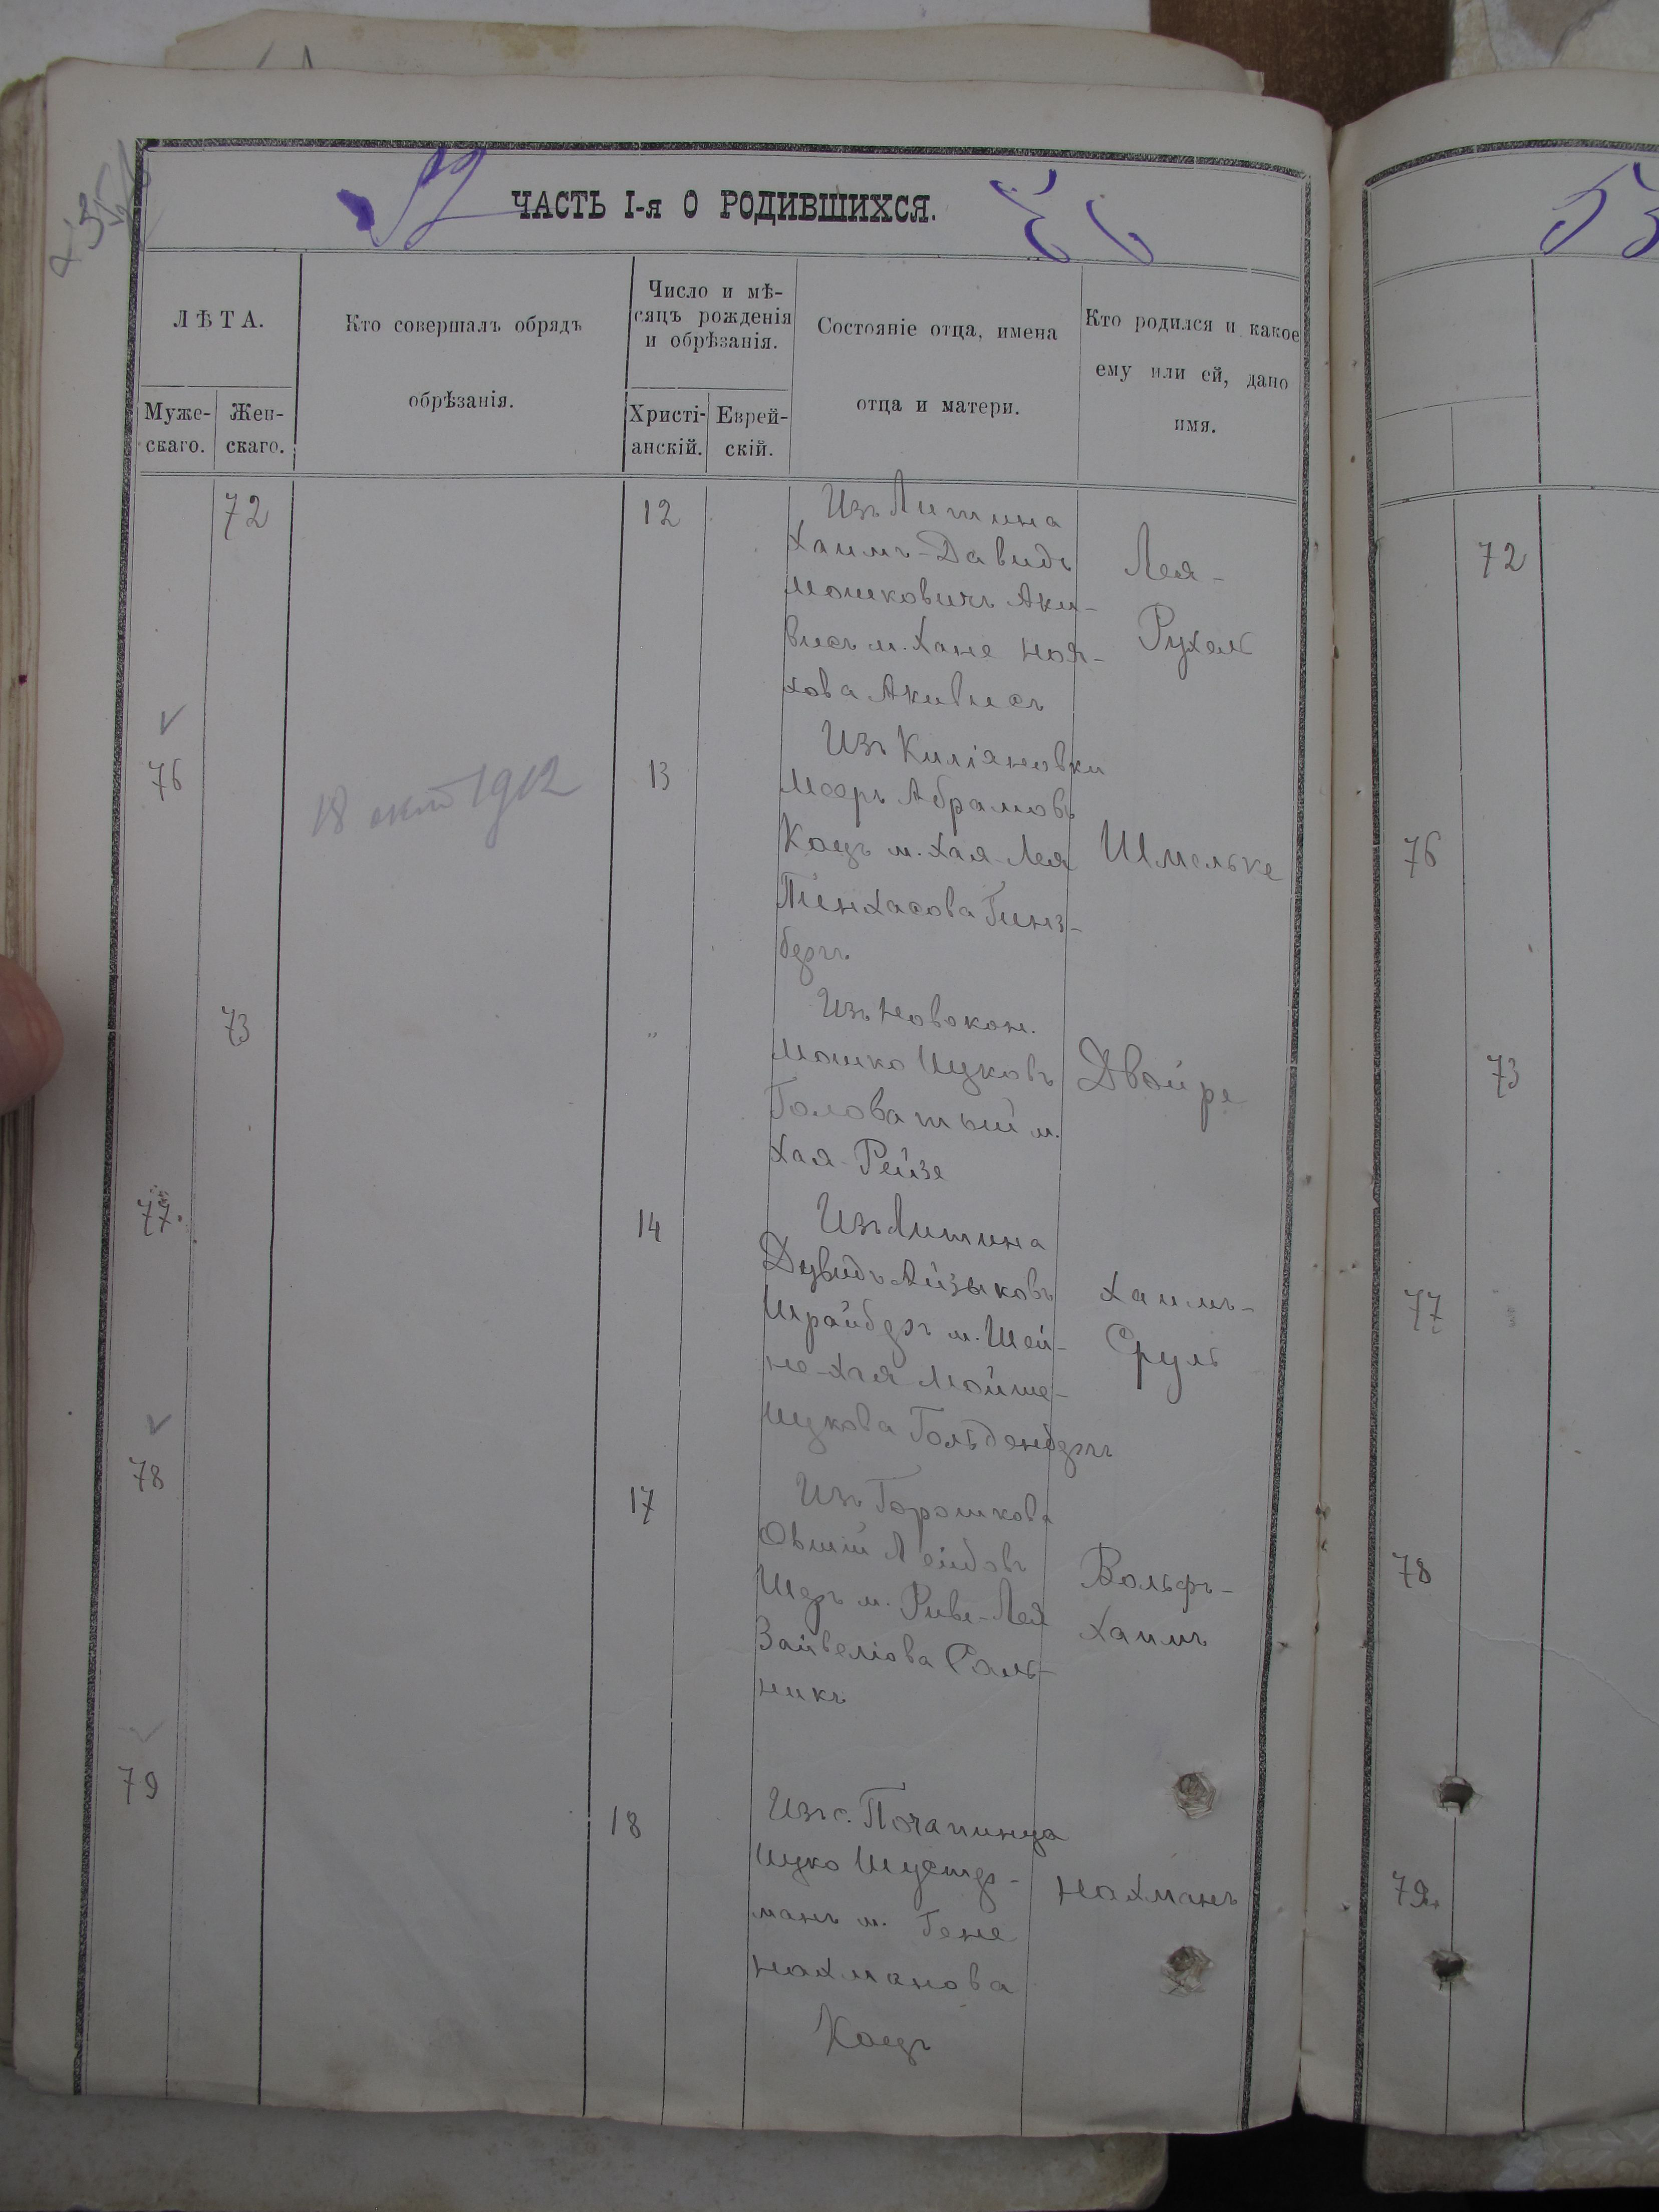 52
ЧАСТЬ I-я О РОДИВШИХСЯ.
ЛѢТА.
Муже-
скаго.
Жен-
скаго.
Кто совершалъ обрядъ
обрѣзанія.
Число и мѣ-
сяцъ рожденія
и обрѣзанія.
Христі-
анскій.
Еврей-
скій.
Состояніе отца, имена
отца и матери.
Кто родился и какое
ему или ей, дано
имя.
72
12
Изъ Литина
Хаимъ-Давидъ
Мошковичъ Аки-
висъ м. Хане Ноя-
хова Акивисъ
Лея-
Рухель
76
18 окт 1912
13
Изъ Киліяновки
Мееръ Абрамовъ
Кацъ м. Хая-Лея
Пинхасова Гинз-
бергъ
Шмельке
73
"
Изъ Новокон.
Мошко Ицковъ
Головатый м.
Хая-Рейзе
Двойре
77.
14
Изъ Литина
Дувидъ Айзыковъ
Шрайберъ м. Шей-
не-Хая Мойше-
Ицкова Гольденбергъ
Хаимъ-
Сруль
78
17
Изъ Горошкова
Овшій Лейбовъ
Шеръ м. Риве-Лея
Зайвеліова Саль-
никъ
Вольфъ-
Хаимъ
79
18
Изъ с. Почапинца
Ицко Шустер-
манъ м. Гене
Нахманова
Кацъ
Нахманъ
53
72
76
73
77
78
79